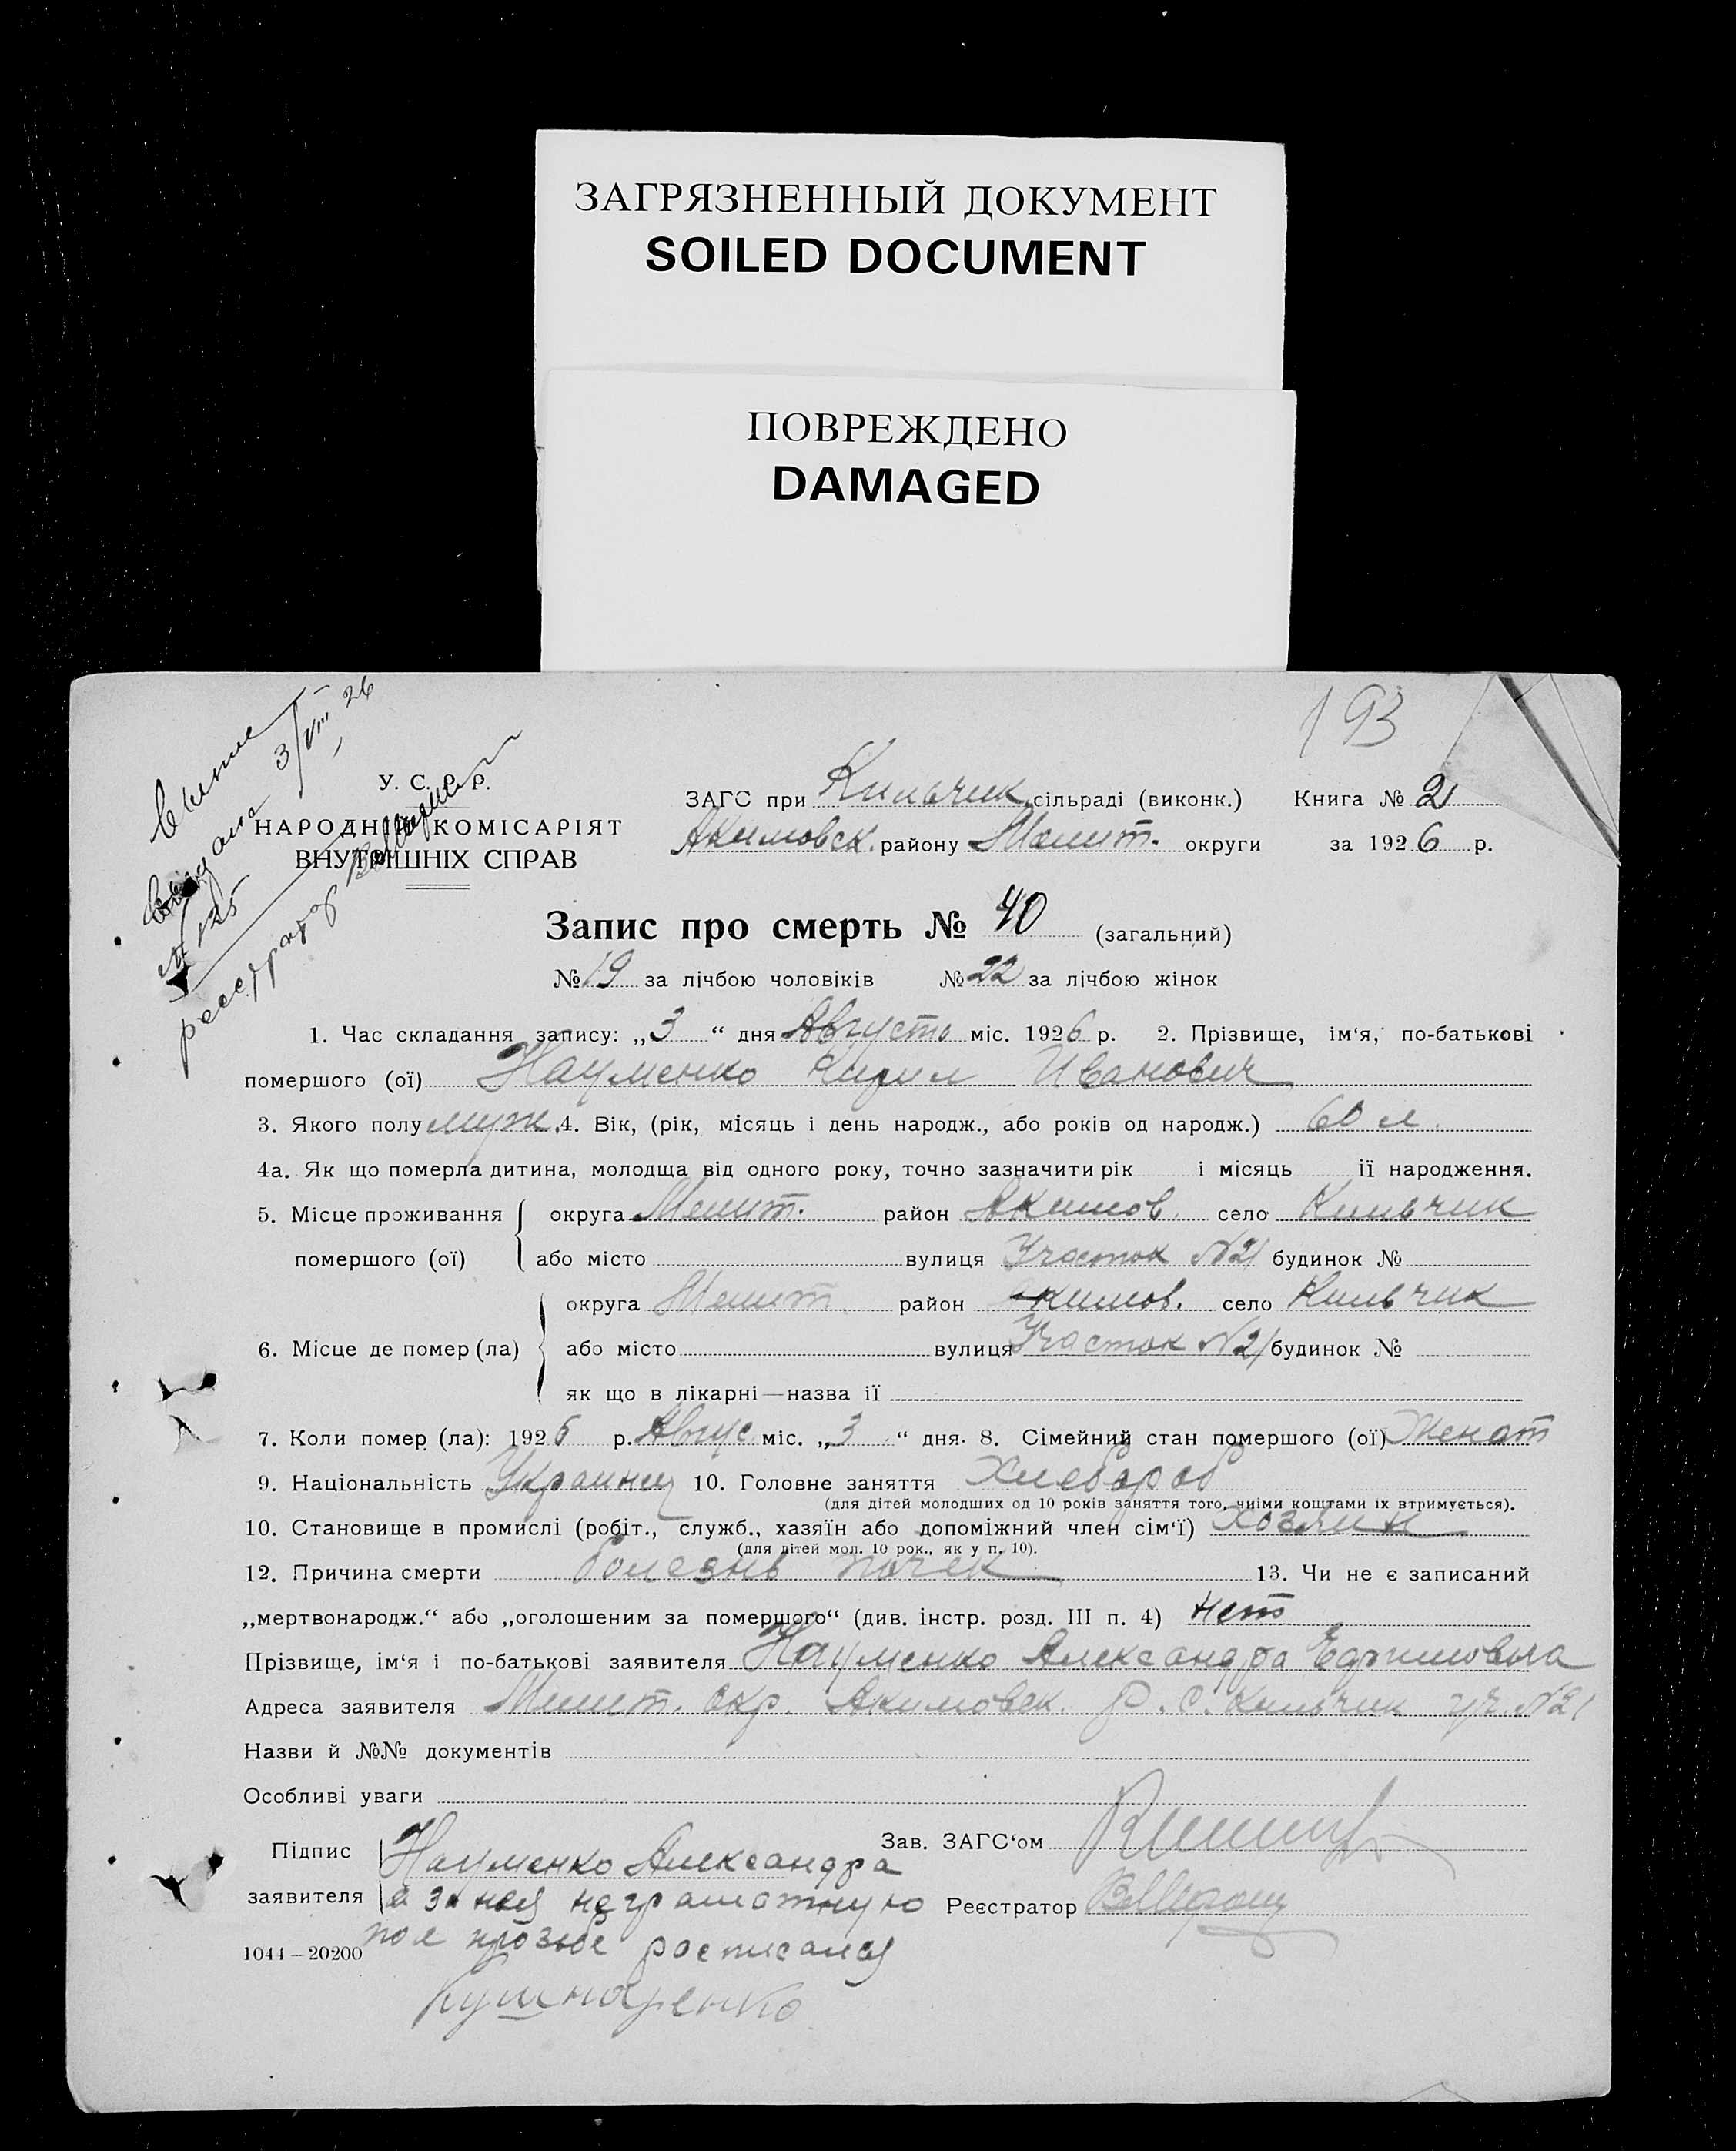 ЗАГРЯЗНЕННЫЙ ДОКУМЕНТ
SOILED DOCUMENT
ПОВРЕЖДЕНО
DAMAGED
193
3/VIII 26
№ 125
У. С. Р. Р.
НАРОДНІЙ КОМІСАРІЯТ
ВНУТРІШНІХ СПРАВ
ЗАГС при Кильчик сільраді (виконк.) Книга № 2
Акимовск. району Мелит. округи за 1926 р.
Запис про смерть № 40 (загальний)
№ 19 за лічбою чоловіків № 22 за лічбою жінок
1. Час складання запису: „3“ дня Августа міс. 1926 р. 2. Прізвище, ім‘я, по-батькові
помершого (ої) Науменко Кирил Иванович
3. Якого полу муж. 4. Вік, (рік, місяць і день народж., або років од народж.) 60 л.
4а. Як що померла дитина, молодща від одного року, точно зазначити рік і місяць її народження.
5. Місце проживання округа Мелит. район Акимов. село Кильчик
помершого (ої) або місто вулиця Участок №21 будинок №
округа Мелит. район Акимов. село Кильчик
6. Місце де помер (ла) або місто вулиця Участок №21 будинок №
як що в лікарні—назва її
7. Коли помер (ла): 1926 р. Авгус. міс. „3“ дня. 8. Сімейний стан помершого (ої) Женат
9. Національність Украинец 10. Головне заняття Хлебороб
(для дітей молодших од 10 років заняття того, чиїми коштами їх втримується).
10. Становище в промислі (робіт., служб., хазяїн або допоміжний член сім‘ї) Хозяин
(для дітей мол. 10 рок., як у п. 10).
12. Причина смерти болезнь почек 13. Чи не є записаний
„мертвонародж.“ або „оголошеним за помершого“ (див. інстр. розд. III п. 4) нет
Прізвище, ім‘я і по-батькові заявителя Науменко Александра Ефимовна
Адреса заявителя Мелит. окр. Акимовск. р. с. Кильчик уч. №21
Назви й №№ документів
Особливі уваги
Підпис Науменко Александра Зав. ЗАГС‘ом
заявителя а за нея неграмотную Реєстратор
1044—20200 по ее прозьбе росписался
Кушнаренко